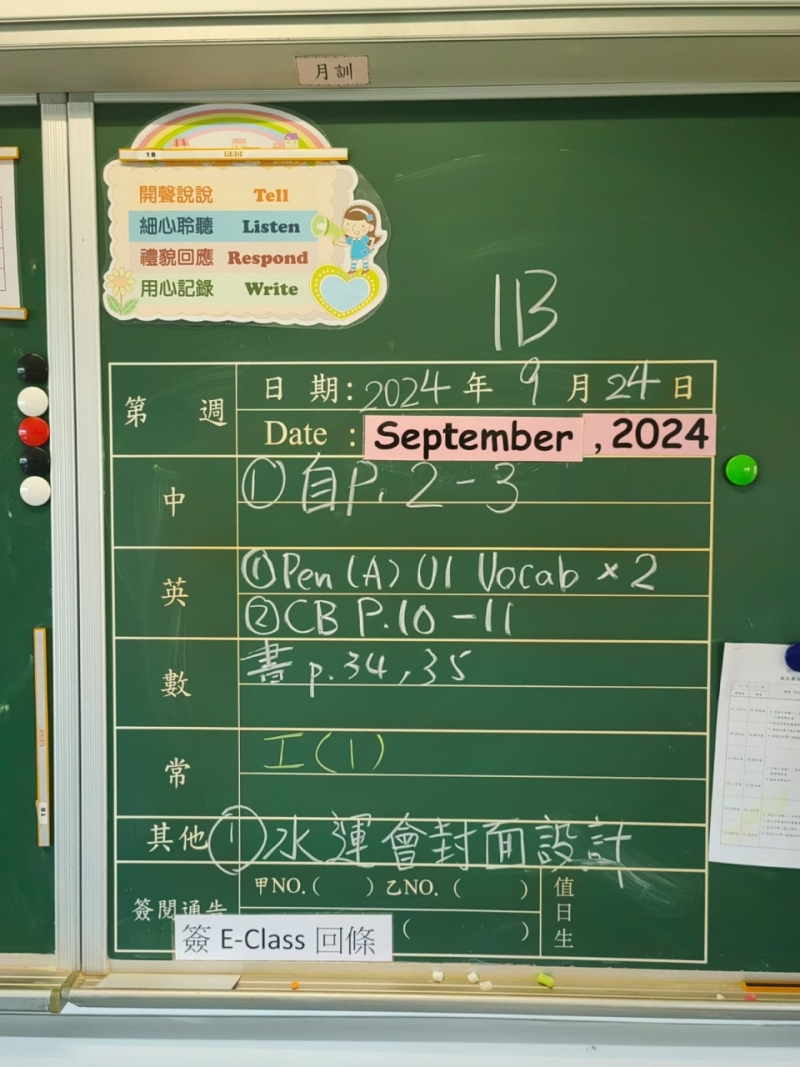 月訓
開聲說說 Tell
細心聆聽 Listen
禮貌回應 Respond
用心記錄 Write
1B
第 週
日期:2024年9月24日
Date : September , 2024
中
① 自P. 2-3
英
① Pen (A) U1 Vocab × 2
② CB P.10 - 11
數
書 p.34, 35
常
工(1)
其他
① 水運會封面設計
簽閱通告
甲NO.( ) 乙NO. ( )
( )
值日生
簽 E-Class 回條